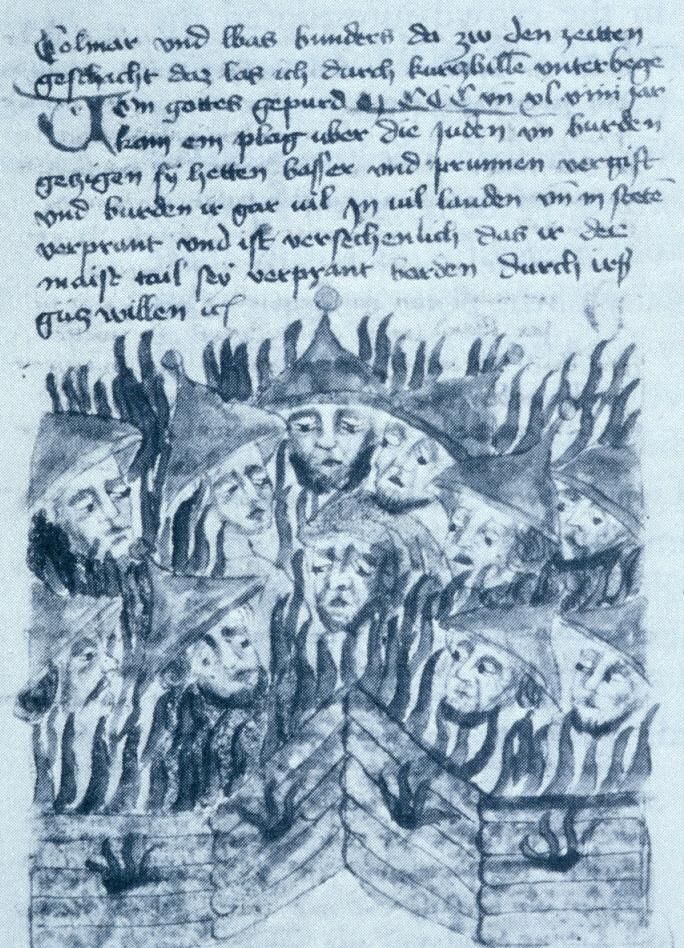 Colmar vnd was bunders da zw den zeitten
geschicht daz las ich durch kurczbille vnterbege
Dem gottes gepurd MCCC vn xl viiii jar
kam ein plag uber die juden vn burden
getzigen sy hetten basser vnd prunnen vergift
vnd burden ir gar uil in uil landen vn in stete
verprant vnd ist versechenlich das ir der
maist tail sey verprant borden durch irss
gutz willen ic